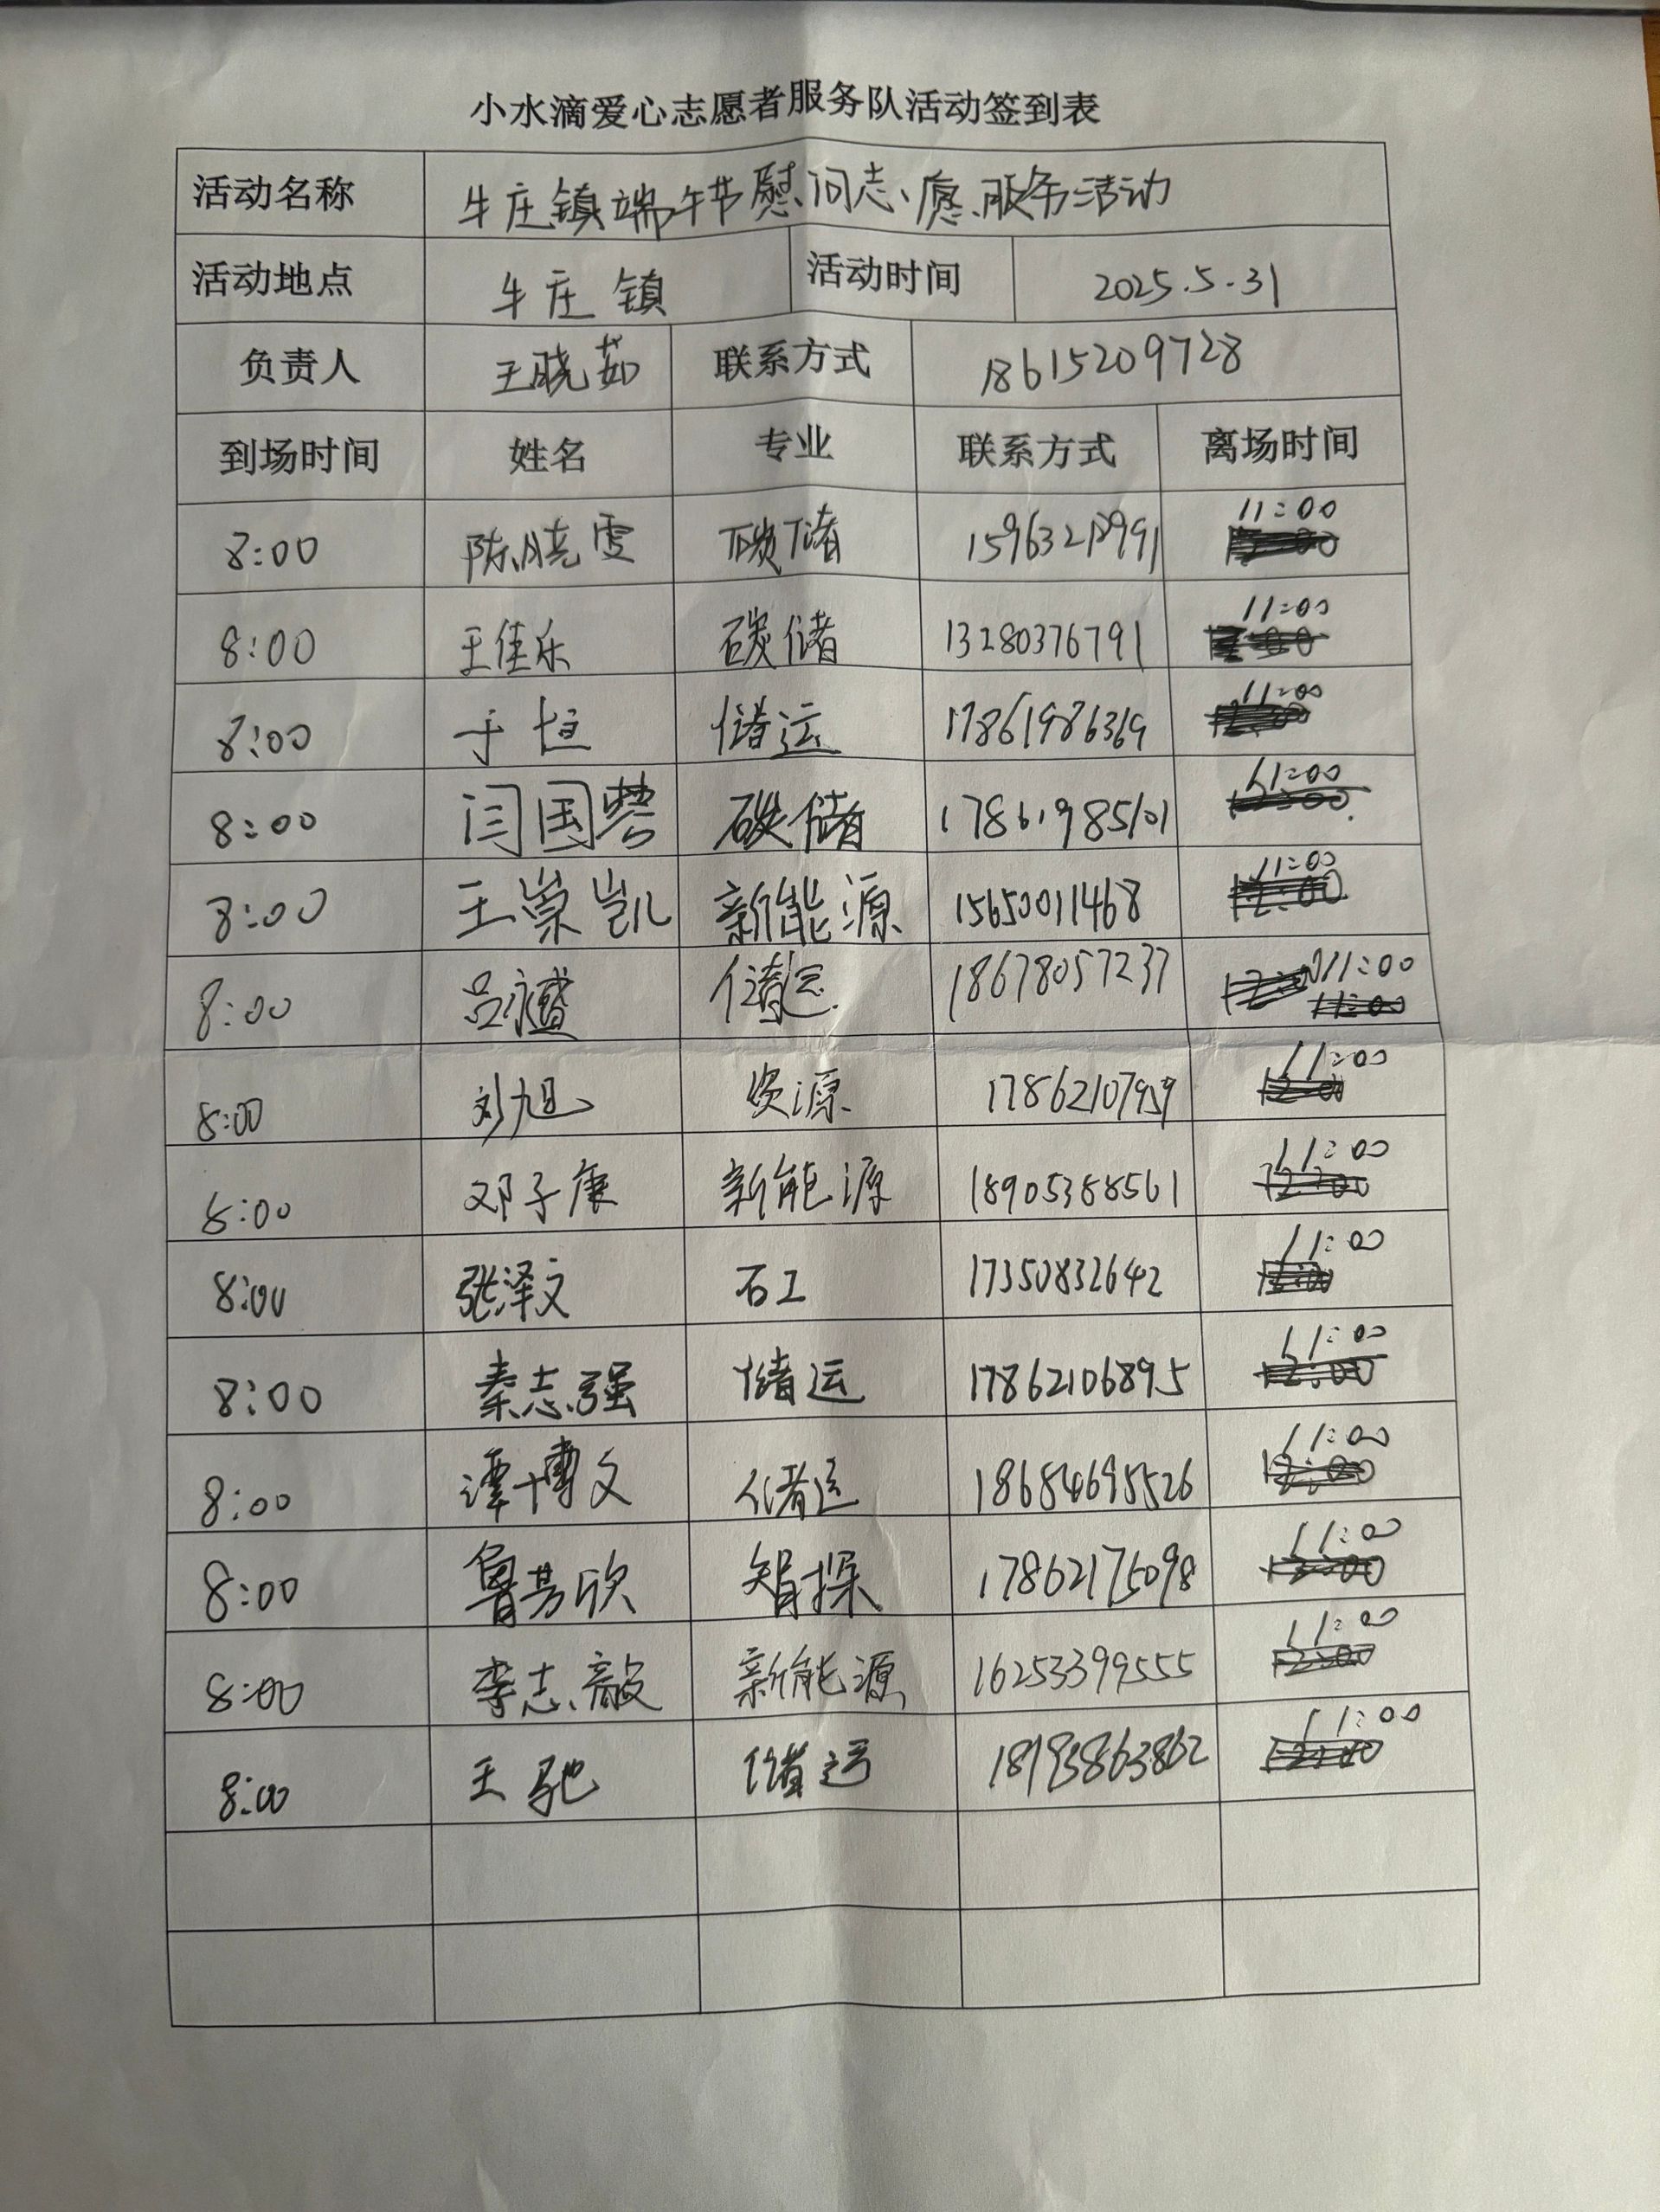 小水滴爱心志愿者服务队活动签到表
活动名称 牛庄镇端午节慰问志愿服务活动
活动地点 牛庄镇 活动时间 2025.5.31
负责人 王晓茹 联系方式 18615209728
到场时间 姓名 专业 联系方式 离场时间
8:00 陈晓雯 碳储 11:00
8:00 王佳乐 碳储 13280376791 11:00
8:00 于恒 储运 17861986369 11:00
8:00 闫国 碳储 17861985101 11:00
8:00 王崇凯 新能源 15650011468 11:00
8:00 吕永盛 储运 18678057237 11:00
8:00 刘旭 资源 11:00
8:00 邓子康 新能源 18905388561 11:00
8:00 张泽文 石工 17350832642 11:00
8:00 秦志强 储运 17862106895 11:00
8:00 谭博文 储运 18684695526 11:00
8:00 鲁芳欣 智探 17862175098 11:00
8:00 李志毅 新能源 16253399555 11:00
8:00 王驰 储运 11:00